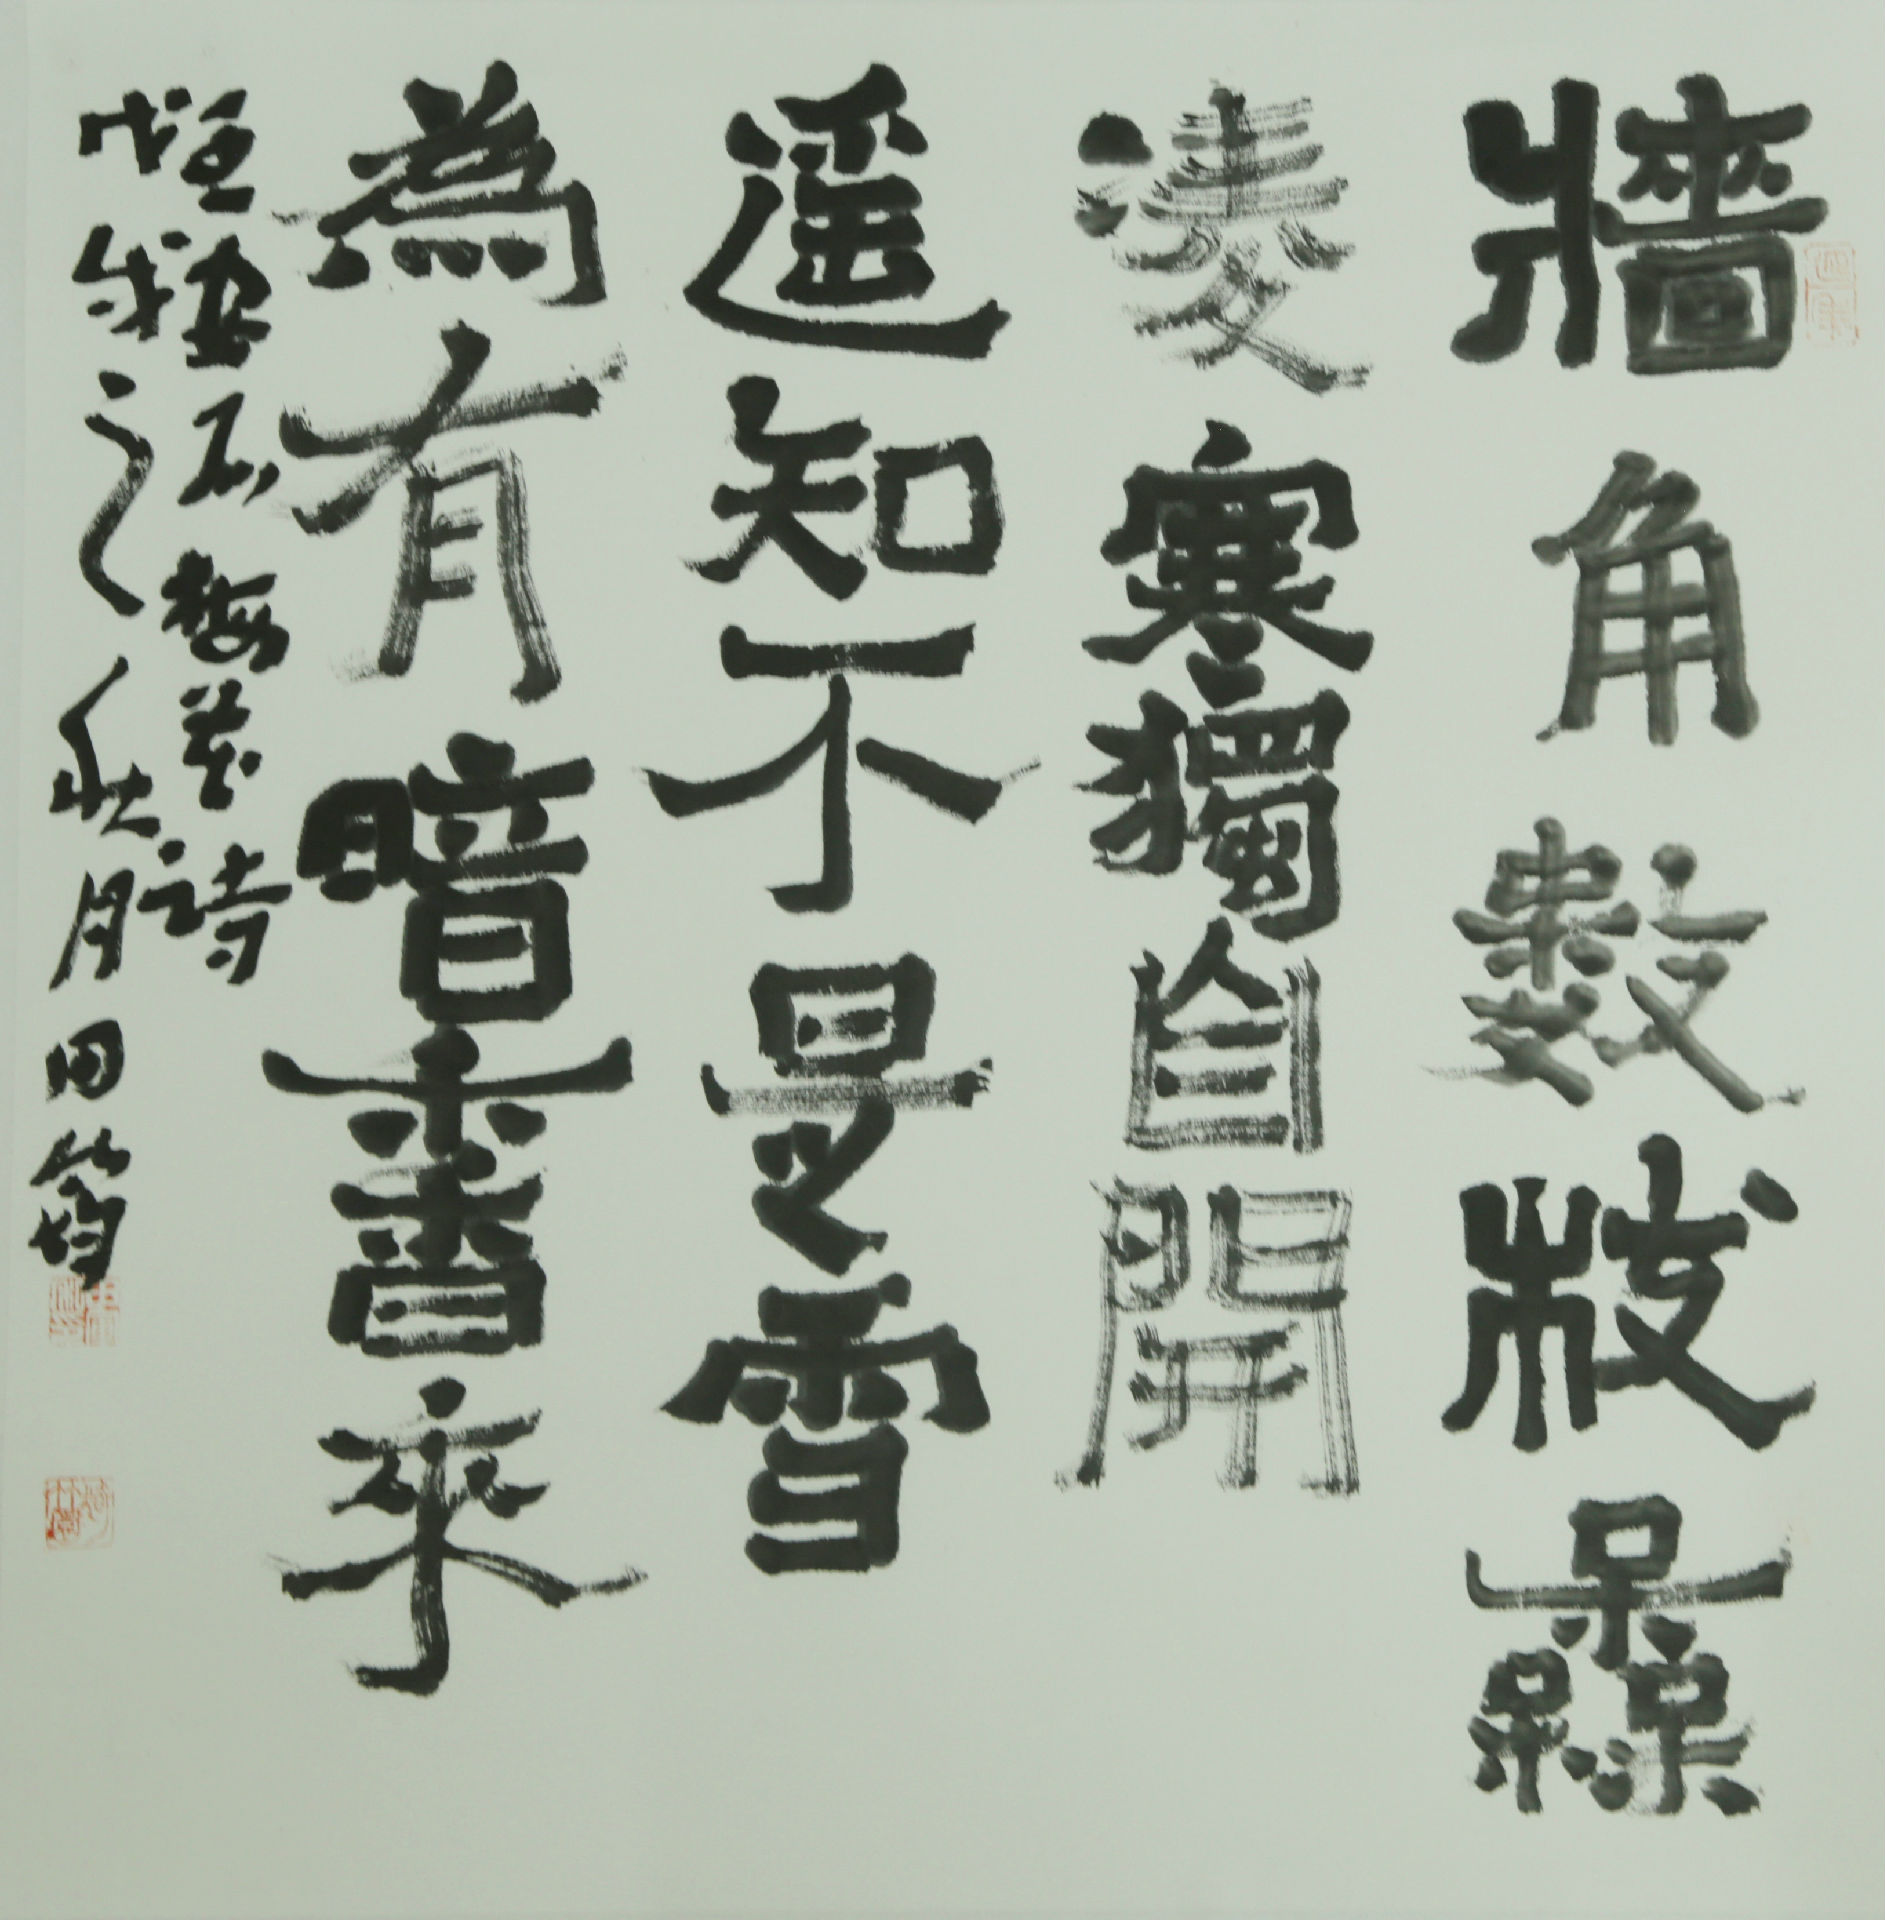 牆角數枝槑
凌寒獨自開
遥知不是雪
為有暗香來
王安石梅花詩
戊戌之秋月田筠